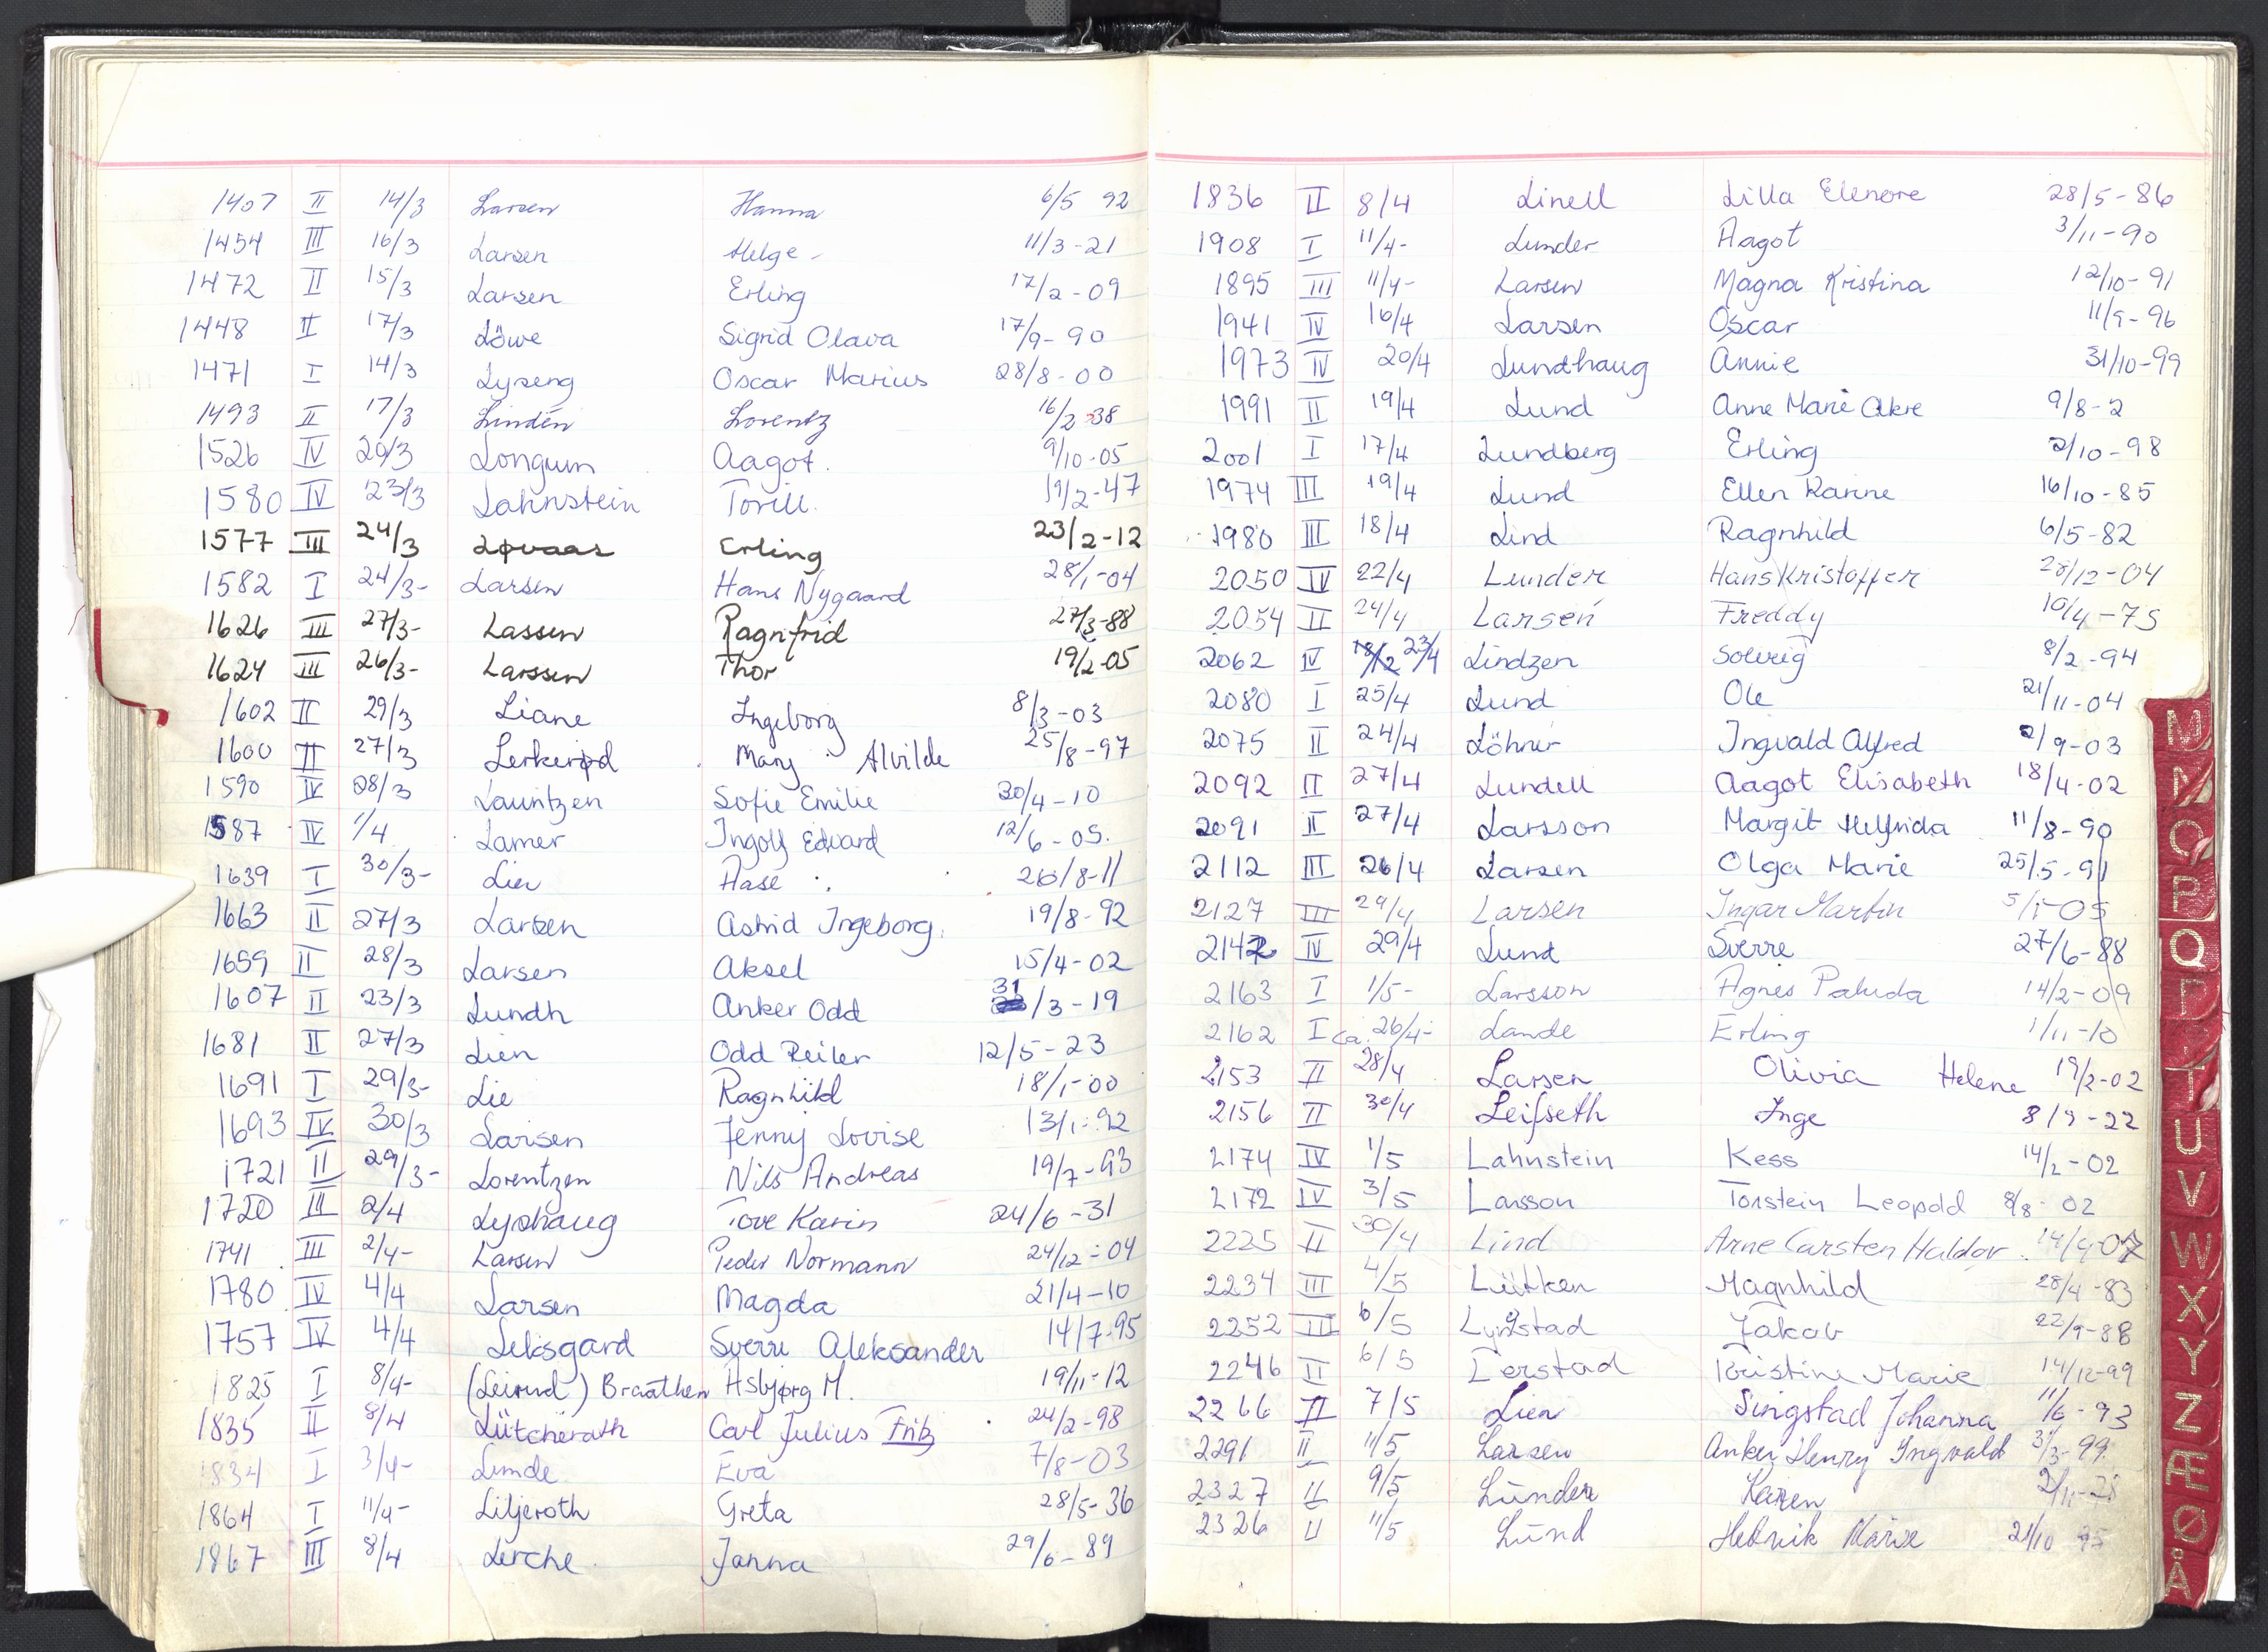 1407 II 14/3 Larsen Hanna 6/5 92
1454 III 16/3 Larsen Helge - 11/3-21
1472 II 15/3 Larsen Erling 17/2-09
1448 II 17/3 Löwe Sigrid Olava 17/9-90
1471 I 14/3 Lyseng Oscar Marius 28/8-00
1493 II 17/3 Lindén Lorentz 16/2-38
1526 IV 20/3 Longum Aagot. 9/10-05
1580 IV 23/3 Lahnstein Torill. 19/2-47
1577 III 24/3 Løvaas Erling 23/2-12
1582 I 24/3- Larsen Hans Nygaard 28/1-04
1626 III 27/3- Lassen Ragnfrid 27/3-88
1624 III 26/3- Larssen Thor 19/2-05
1602 II 29/3 Liane Ingeborg 8/3-03
1600 II 27/3 Lerkerød Mary Alvilde 25/8-97
1590 IV 28/3 Lauritzen Sofie Emilie 30/4-10
1587 IV 1/4 Lamer Ingolf Edvard 12/6-05.
1639 I 30/3- Lier Aase 26/8-11
1663 II 27/3 Larsen Astrid Ingeborg. 19/8-92
1659 II 28/3 Larsen Aksel 15/4-02
1607 II 23/3 Lundh Anker Odd 31/3-19
1681 II 27/3 Lien Odd Reiler 12/5-23
1691 I 29/3- Lie Ragnhild 18/1-00
1693 IV 30/3 Larsen Jenny Lovise 13/1-92
1721 II 29/3- Lorentzen Nils Andreas 19/7-93
1720 III 2/4 Lyshaug Tove Karin 24/6-31
1741 III 2/4- Larsen Peder Normann 24/12-04
1780 IV 4/4 Larsen Magda 21/4-10
1757 IV 4/4 Leksgard Sverre Aleksander 14/7-95
1825 I 8/4- (Leirud) Braathen Asbjørg M. 19/11-12
1835 II 8/4 Lütcherath Carl Julius Fritz 24/2-98
1834 I 3/4- Linde Eva 7/8-03
1864 I 11/4- Liljeroth Greta 28/5-36
1867 III 8/4 Lerche Janna 29/6-89
1836 II 8/4 Linell Lilla Elenore 28/5-86
1908 I 11/4- Lunder Aagot 3/11-90
1895 III 11/4- Larsen Magna Kristina 12/10-91
1941 IV 16/4 Larsen Oscar 11/9-96
1973 IV 20/4 Lundhaug Annie 31/10-99
1991 II 19/4 Lund Anne Marie Akre 9/8-2
2001 I 17/4 Lundberg Erling 2/10-98
1974 III 19/4 Lund Ellen Karine 16/10-85
1980 III 18/4 Lind Ragnhild 6/5-82
2050 IV 22/4 Lunder Hans Kristoffer 28/12-04
2054 II 24/4 Larsen Freddy 10/4-75
2062 IV 18/2 23/4 Lindzen Solveig 8/2-94
2080 I 25/4 Lund Ole 21/11-04
2075 II 24/4 Löhner Ingvald Alfred 2/9-03
2092 II 27/4 Lundell Aagot Elisabeth 18/4-02
2091 II 27/4 Larsson Margit Helfrida 11/8-90
2112 III 26/4 Larsen Olga Marie 25/5-91
2127 III 29/4 Larsen Ingar Martin 5/1-05
2142 IV 29/4 Lund Sverre 27/6-88
2163 I 1/5- Larsson Agnes Paluda 14/2-09
2162 I ca. 26/4- Lande Erling 1/11-10
2153 II 28/4 Larsen Olivia Helene 19/2-02
2156 II 30/4 Leifseth Inge 8/9-22
2174 IV 1/5 Lahnstein Kess 14/2-02
2172 IV 3/5 Larsson Torstein Leopold 8/8-02
2225 II 30/4 Lind Arne Carsten Haldor. 14/4-07
2234 III 4/5 Lütken Magnhild 28/4-83
2252 III 6/5 Lyngstad Jakob 22/9-88
2246 II 6/5 Lerstad Kristine Marie 14/12-99
2266 II 7/5 Lien Singstad Johanna 11/6-93
2291 II 11/5 Larsen Anker Henry Ingvald 31/3-99.
2327 II 9/5 Lunder Karen 2/11-28
2326 II 11/5 Lund Marie 21/10 95
M
N
O
P
Q
R
T
U
V
W
X
Y
Z
Æ
Ø
Å